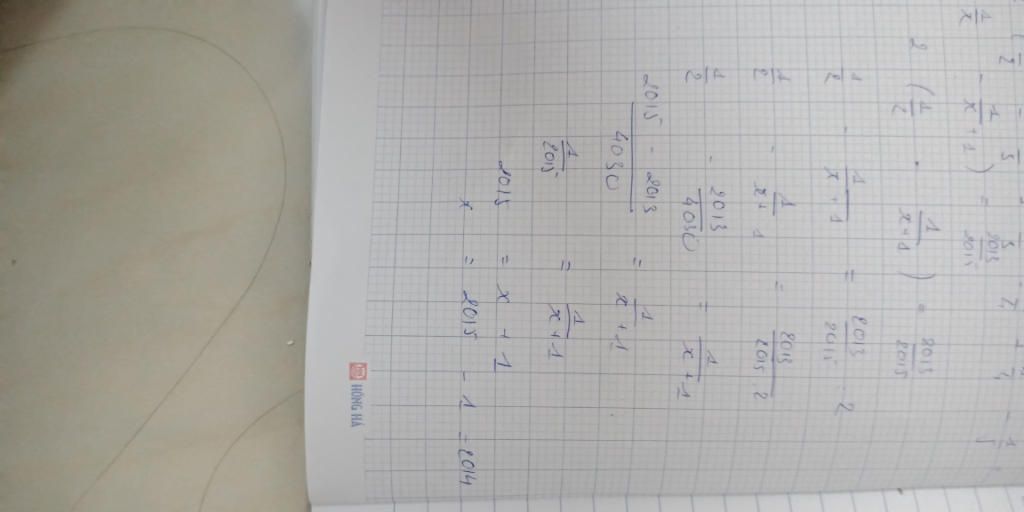 1/x - 1/(x+1)) = 2013/2015
2 (1/2 - 1/(x+1)) = 2013/2015
1/2 - 1/(x+1) = 2013/2015 : 2
1/2 - 1/(x+1) = 2013/(2015.2)
1/2 - 2013/4030 = 1/(x+1)
(2015 - 2013)/4030 = 1/(x+1)
1/2015 = 1/(x+1)
2015 = x + 1
x = 2015 - 1 = 2014
HỒNG HÀ